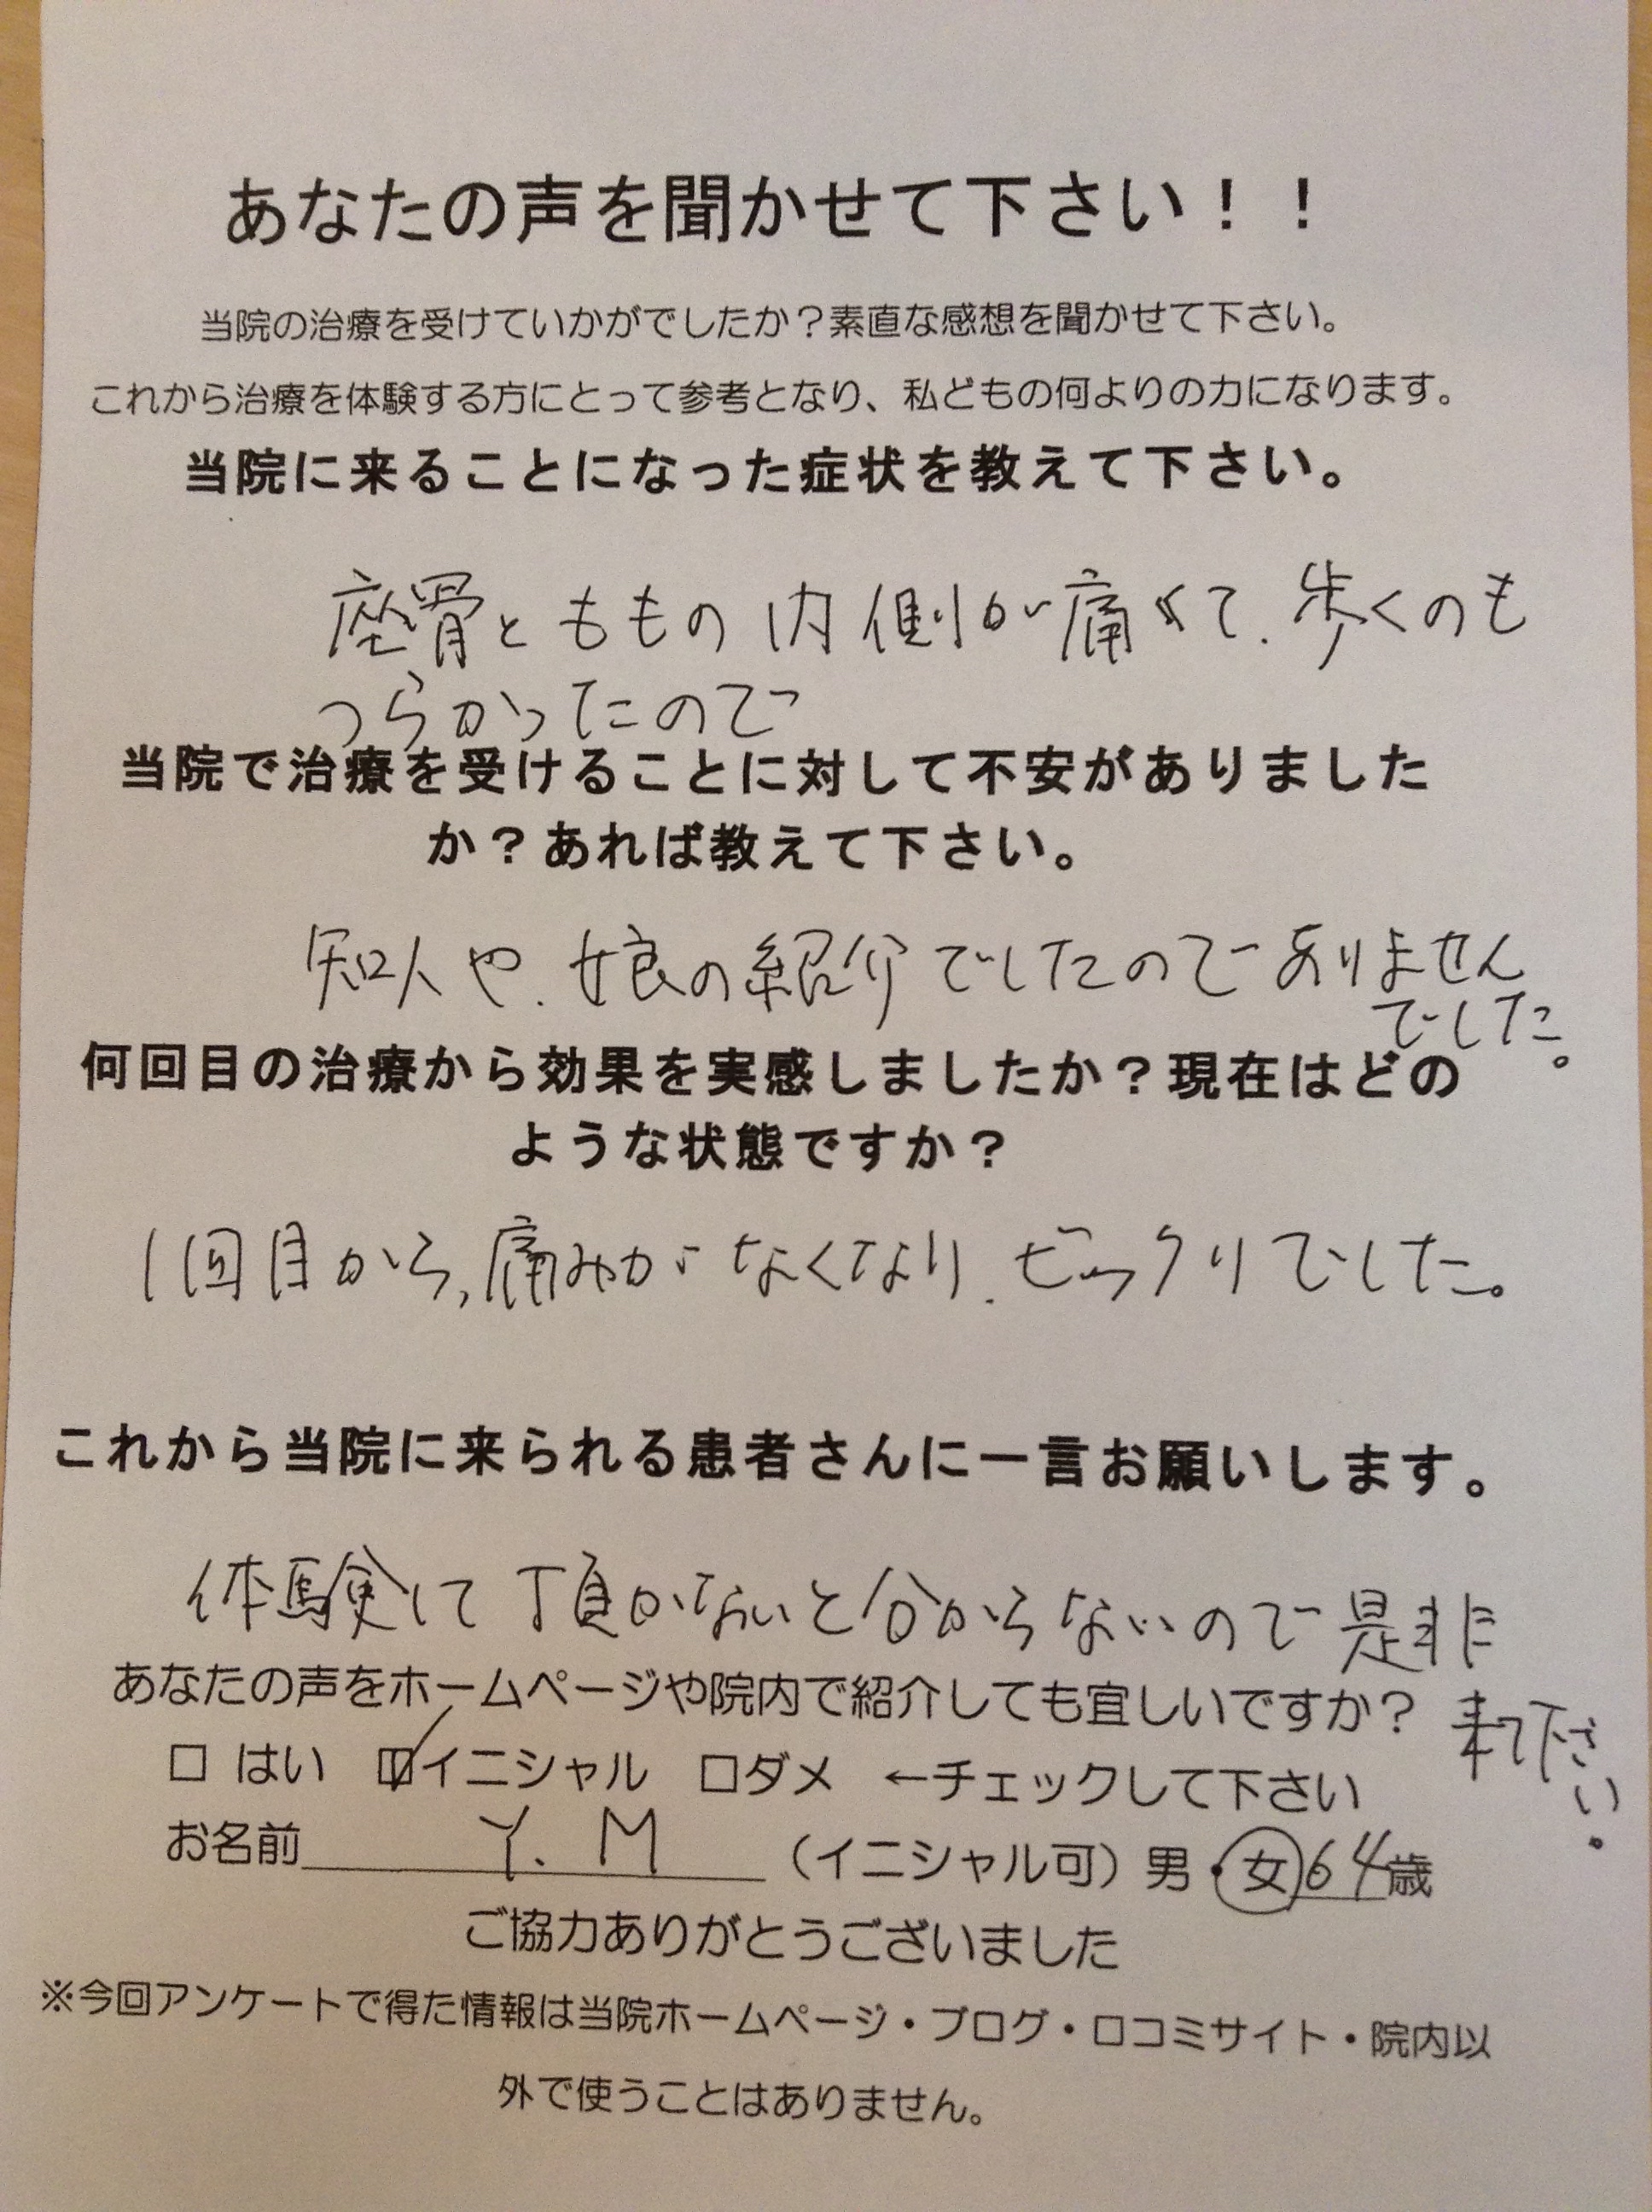 あなたの声を聞かせて下さい！！
当院の治療を受けていかがでしたか？素直な感想を聞かせて下さい。
これから治療を体験する方にとって参考となり、私どもの何よりの力になります。
当院に来ることになった症状を教えて下さい。
座骨とももの内側が痛くて、歩くのも
つらかったので
当院で治療を受けることに対して不安がありました
か？あれば教えて下さい。
知人や、娘の紹介でしたのでありません
でした。
何回目の治療から効果を実感しましたか？現在はどの
ような状態ですか？
1回目から、痛みがなくなり、ビックリでした。
これから当院に来られる患者さんに一言お願いします。
体験して頂かないと分からないので是非
来て下さい。
あなたの声をホームページや院内で紹介しても宜しいですか？
□ はい ☑イニシャル □ダメ ←チェックして下さい
お名前 Y. M （イニシャル可）男・女 64歳
ご協力ありがとうございました
※今回アンケートで得た情報は当院ホームページ・ブログ・口コミサイト・院内以
外で使うことはありません。